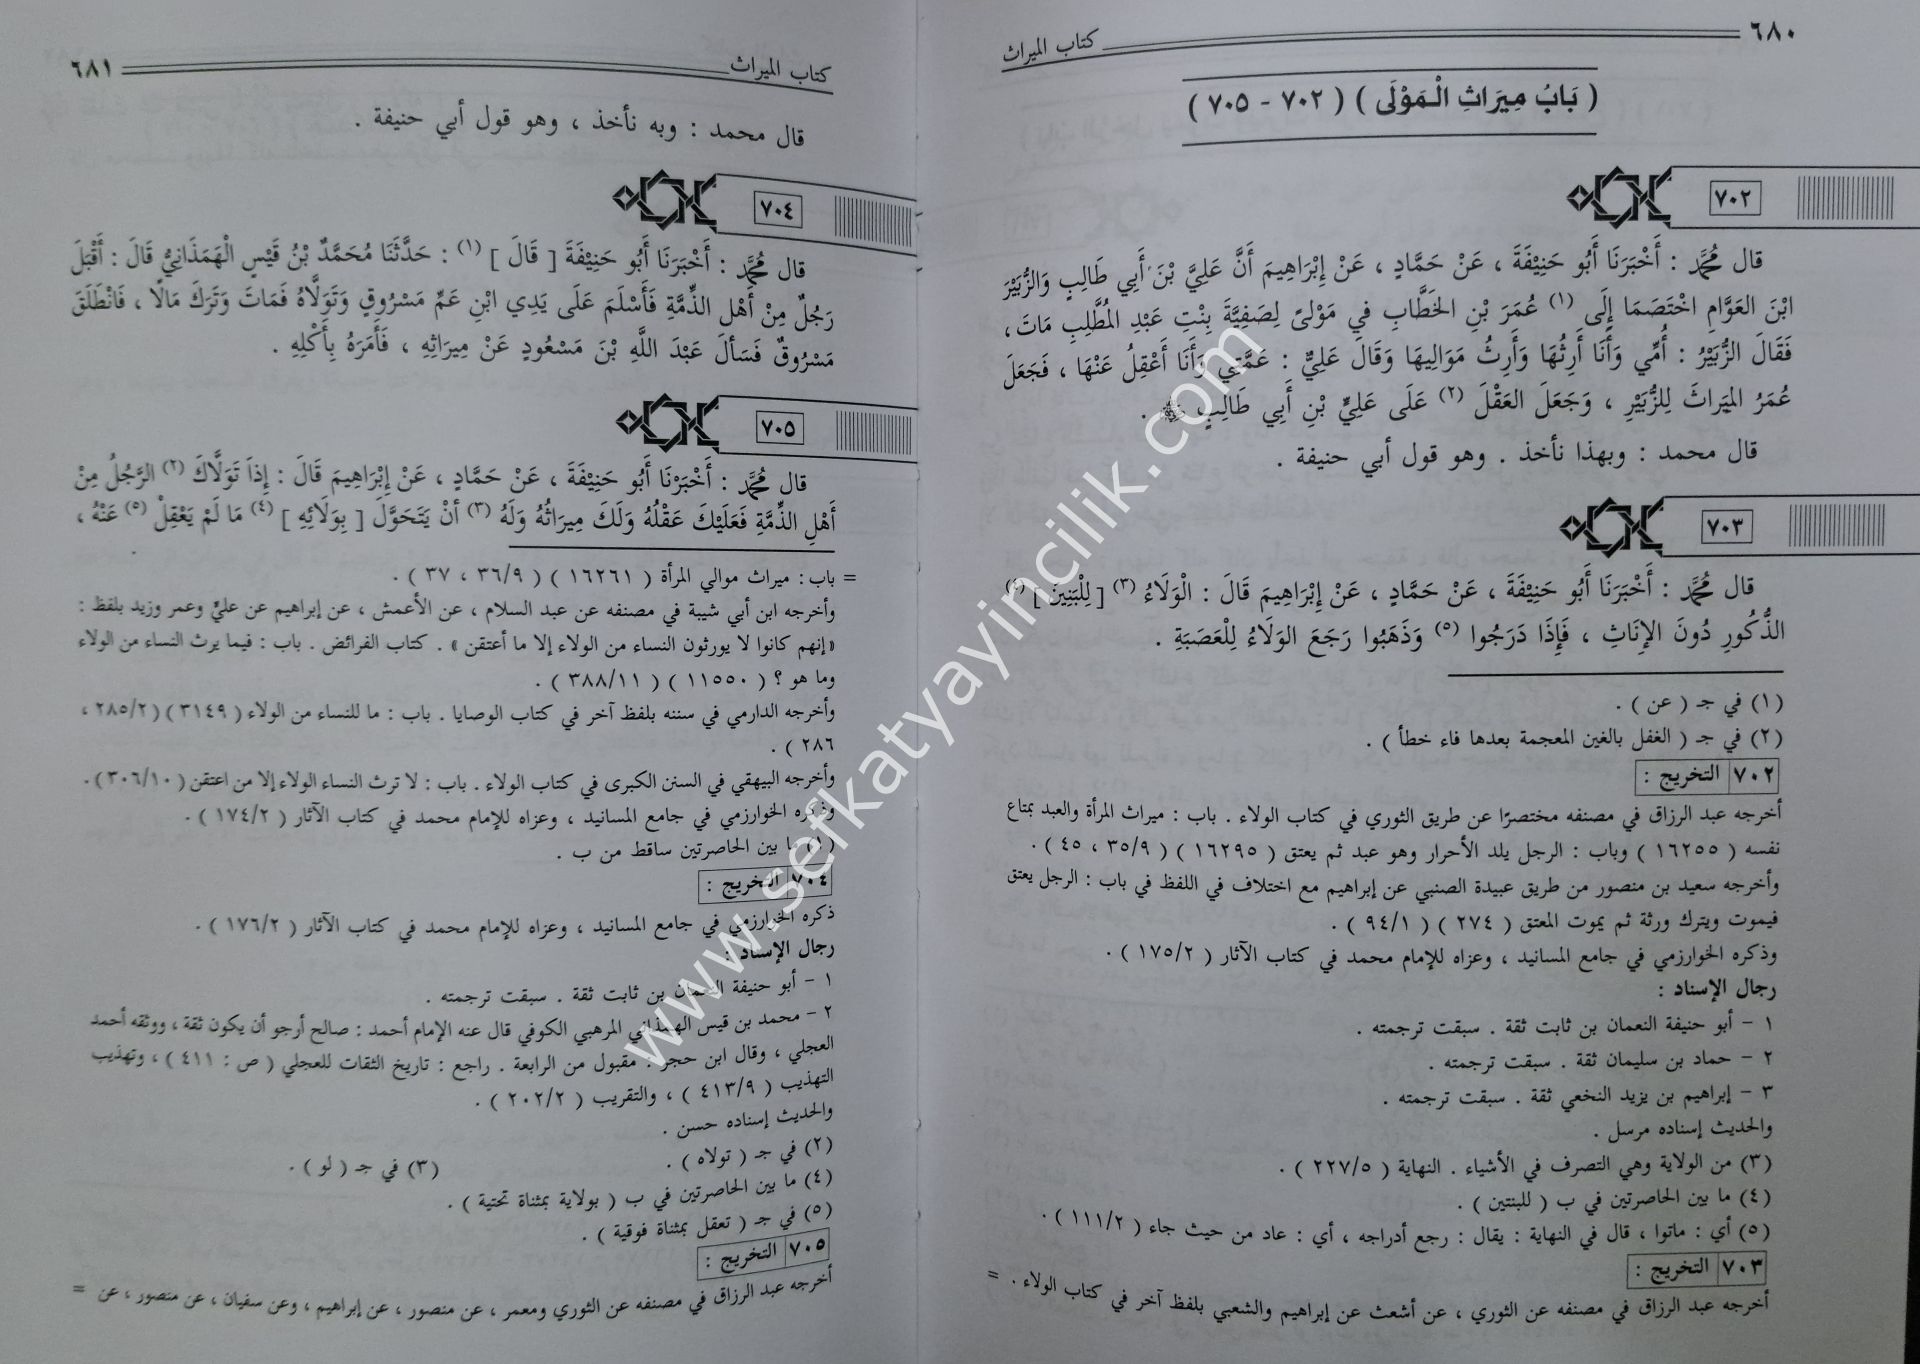 ٦٨٠
كتاب الميراث
( بَابُ مِيَرَاثِ الْمَوْلَى ) ( ٧٠٢ - ٧٠٥ )
٧٠٢
قال مُحَمَّد : أَخْبَرَنَا أَبُو حَنِيْفَةَ ، عَنْ حَمَّادٍ ، عَنْ إِبْرَاهِيمَ أَنَّ عَلِيَّ بْنَ أَبِي طَالِبٍ وَالزُّبَيْرَ
ابْنَ العَوَّامِ اخْتَصَمَا إِلَى (١) عُمَرَ بْنِ الخَطَّابِ فِي مَوْلىً لِصَفِيَّةَ بِنْتِ عَبْدِ المُطَّلِبِ مَاتَ ،
فَقَالَ الزُّبَيْرُ : أُمِّي وَأَنَا أَرِثُهَا وَأَرِثُ مَوَالِيهَا وَقَالَ عَلِيٌّ : عَمَّتِي وَأَنَا أَعْقِلُ عَنْهَا ، فَجَعَلَ
عُمَرُ المِيَراثَ لِلزُّبَيْرِ ، وَجَعَلَ العَقْلَ (٢) عَلَى عَلِيِّ بْنِ أَبِي طَالِبٍ .
قال محمد : وبهذا نأخذ . وهو قول أبي حنيفة .
٧٠٣
قال مُحَمَّد : أَخْبَرَنَا أَبُو حَنِيْفَةَ ، عَنْ حَمَّادٍ ، عَنْ إِبْرَاهِيمَ قَالَ : الْوَلَاءُ (٣) [ لِلْبَنِينَ ] (٤)
الذُّكُورِ دُونَ الإِنَاثِ ، فَإِذَا دَرَجُوا (٥) وَذَهَبُوا رَجَعَ الوَلَاءُ لِلْعَصَبَةِ .
(١) في جـ ( عن ) .
(٢) في جـ ( الغفل بالغين المعجمة بعدها فاء خطأ ) .
٧٠٢ التخريج :
أخرجه عبد الرزاق في مصنفه مختصرًا عن طريق الثوري في كتاب الولاء . باب : ميراث المرأة والعبد بمتاع
نفسه ( ١٦٢٥٥ ) وباب : الرجل يلد الأحرار وهو عبد ثم يعتق ( ١٦٢٩٥ ) ( ٣٥/٩ ، ٤٥ ) .
وأخرجه سعيد بن منصور من طريق عبيدة الصنبي عن إبراهيم مع اختلاف في اللفظ في باب : الرجل يعتق
فيموت ويترك ورثة ثم يموت المعتق ( ٢٧٤ ) ( ٩٤/١ ) .
وذكره الخوارزمي في جامع المسانيد ، وعزاه للإمام محمد في كتاب الآثار ( ١٧٥/٢ ) .
رجال الإسناد :
١ - أبو حنيفة النعمان بن ثابت ثقة . سبقت ترجمته .
٢ - حماد بن سليمان ثقة . سبقت ترجمته .
٣ - إبراهيم بن يزيد النخعي ثقة . سبقت ترجمته .
والحديث إسناده مرسل .
(٣) من الولاية وهي التصرف في الأشياء . النهاية ( ٢٢٧/٥ ) .
(٤) ما بين الحاصرتين في ب ( للبنتين ) .
(٥) أي : ماتوا ، قال في النهاية : يقال : رجع أدراجه ، أي : عاد من حيث جاء ( ١١١/٢ ) .
٧٠٣ التخريج :
أخرجه عبد الرزاق في مصنفه عن الثوري ، عن أشعث عن إبراهيم والشعبي بلفظ آخر في كتاب الولاء . =
كتاب الميراث
٦٨١
قال محمد : وبه نأخذ ، وهو قول أبي حنيفة .
٧٠٤
قال مُحَمَّد : أَخْبَرَنَا أَبُو حَنِيْفَةَ [ قَالَ ] (١) : حَدَّثَنَا مُحَمَّدٌ بْنُ قَيْسٍ الْهَمَذَانِيُّ قَالَ : أَقْبَلَ
رَجُلٌ مِنْ أَهْلِ الذِّمَّةِ فَأَسْلَمَ عَلَى يَدِي ابْنِ عَمِّ مَسْرُوقٍ وَتَوَلَّاهُ فَمَاتَ وَتَرَكَ مَالًا ، فَانْطَلَقَ
مَسْرُوقٌ فَسَأَلَ عَبْدَ اللَّهِ بْنَ مَسْعُودٍ عَنْ مِيرَاثِهِ ، فَأَمَرَهُ بِأَكْلِهِ .
٧٠٥
قال مُحَمَّد : أَخْبَرْنَا أَبُو حَنِيْفَةَ ، عَنْ حَمَّادٍ ، عَنْ إِبْرَاهِيمَ قَالَ : إِذَا تَوَلَّاكَ (٢) الرَّجُلُ مِنْ
أَهْلِ الذِّمَّةِ فَعَلَيْكَ عَقْلُهُ وَلَكَ مِيرَاثُهُ وَلَهُ (٣) أنْ يَتَحَوَّلَ [ بِوَلَائِهِ ] (٤) مَا لَمْ يَعْقِلْ (٥) عَنْهُ ،
= باب : ميراث موالي المرأة ( ١٦٢٦١ ) ( ٣٦/٩ ، ٣٧ ) .
وأخرجه ابن أبي شيبة في مصنفه عن عبد السلام ، عن الأعمش ، عن إبراهيم عن عليٍّ وعمر وزيد بلفظ :
« إنهم كانوا لا يورثون النساء من الولاء إلا ما أعتقن » . كتاب الفرائض . باب : فيما يرث النساء من الولاء
وما هو ؟ ( ١١٥٥٠ ) ( ٣٨٨/١١ ) .
وأخرجه الدارمي في سننه بلفظ آخر في كتاب الوصايا . باب : ما للنساء من الولاء ( ٣١٤٩ ) ( ٢٨٥/٢ ،
٢٨٦ ) .
وأخرجه البيهقي في السنن الكبرى في كتاب الولاء . باب : لا ترث النساء الولاء إلا من اعتقن ( ٣٠٦/١٠ ) .
وذكره الخوارزمي في جامع المسانيد ، وعزاه للإمام محمد في كتاب الآثار ( ١٧٤/٢ ) .
(١) ما بين الحاصرتين ساقط من ب .
٧٠٤ التخريج :
ذكره الخوارزمي في جامع المسانيد ، وعزاه للإمام محمد في كتاب الآثار ( ١٧٦/٢ ) .
رجال الإسناد :
١ - أبو حنيفة النعمان بن ثابت ثقة . سبقت ترجمته .
٢ - محمد بن قيس الهمذاني المرهبي الكوفي قال عنه الإمام أحمد : صالح أرجو أن يكون ثقة ، ووثقه أحمد
العجلي ، وقال ابن حجر : مقبول من الرابعة . راجع : تاريخ الثقات للعجلي ( ص : ٤١١ ) ، وتهذيب
التهذيب ( ٤١٣/٩ ) ، والتقريب ( ٢٠٢/٢ ) .
والحديث إسناده حسن .
(٢) في جـ ( تولاه ) . (٣) في جـ ( لو ) .
(٤) ما بين الحاصرتين في ب ( بولاية بمثناة تحتية ) .
(٥) في جـ ( تعقل بمثناة فوقية ) .
٧٠٥ التخريج :
أخرجه عبد الرزاق في مصنفه عن الثوري ومعمر ، عن منصور ، عن إبراهيم ، وعن سفيان ، عن منصور ، عن =
www.sefkatyayincilik.com